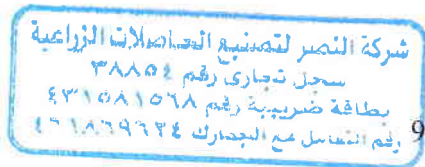 شركة النصر لتصنيع الحاصلات الزراعية
سجل تجارى رقم ٣٨٨٥٤
بطاقة ضريبية رقم ٤٣١٥٨١٥٦٨
رقم التعامل مع الجمارك ٤٦١٨٦٩٦٢٤
9